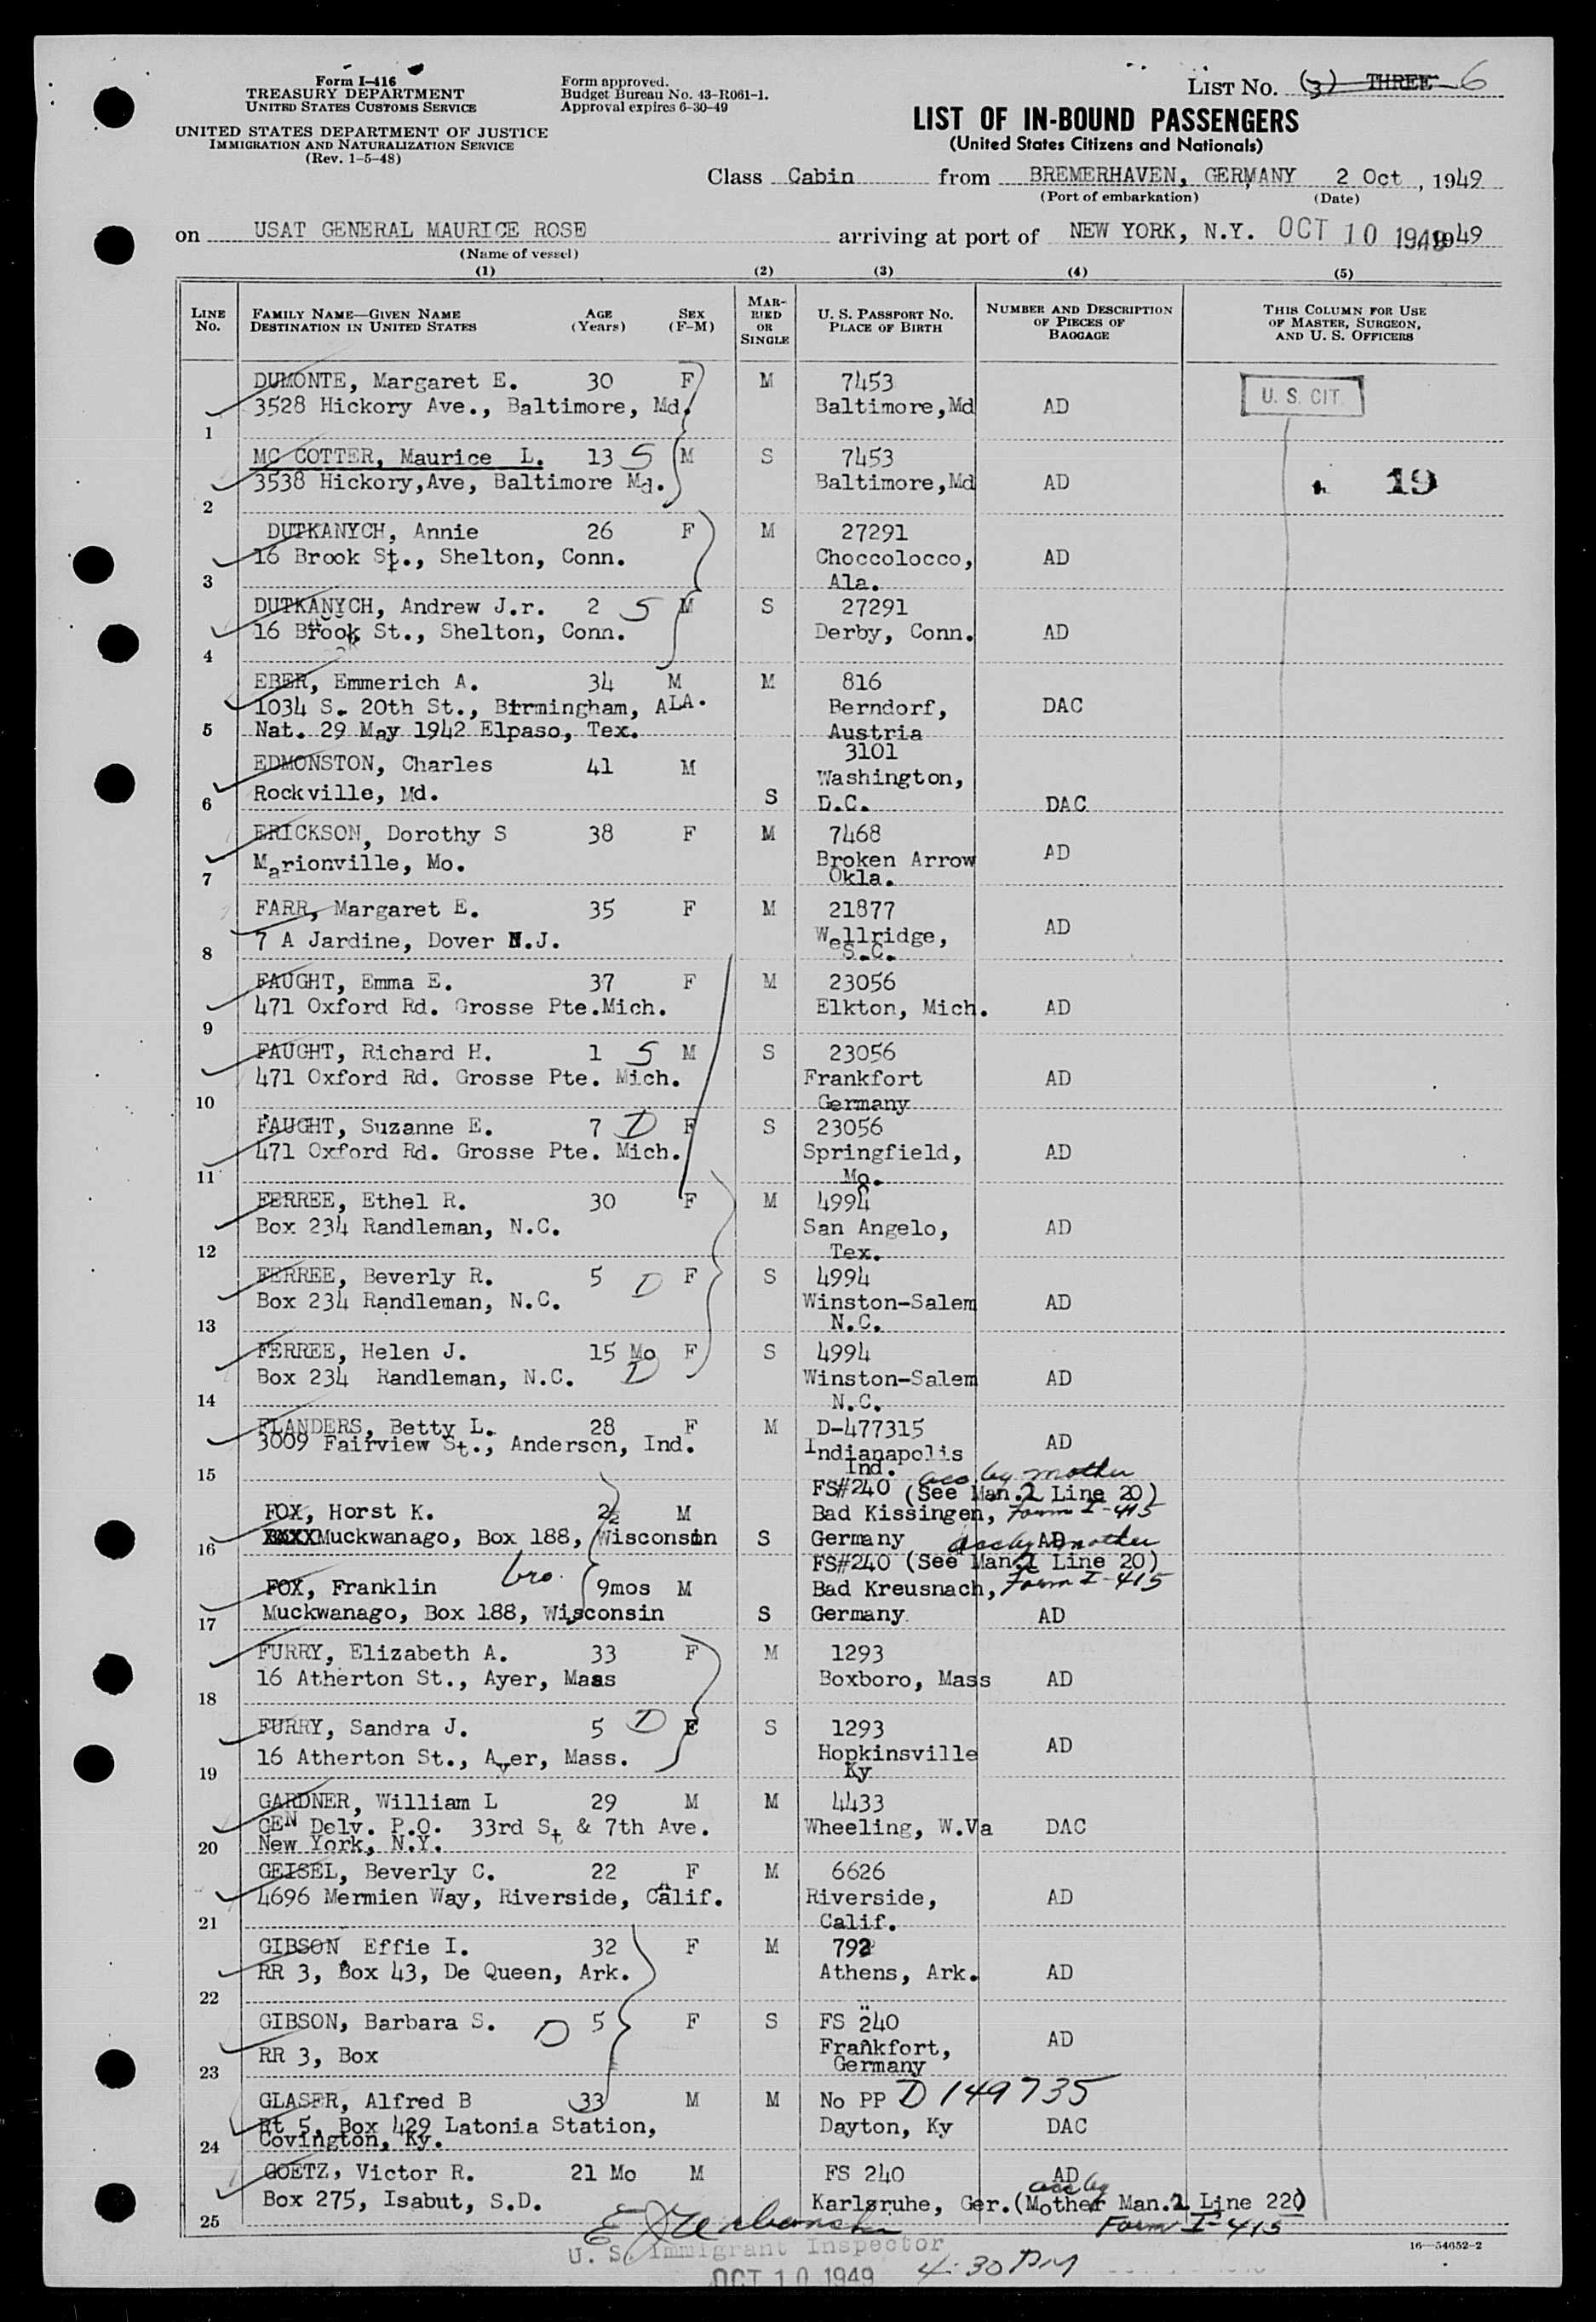 Form I-416
TREASURY DEPARTMENT
UNITED STATES CUSTOMS SERVICE
UNITED STATES DEPARTMENT OF JUSTICE
IMMIGRATION AND NATURALIZATION SERVICE
(Rev. 1-5-48)
Form approved.
Budget Bureau No. 43-R061-1.
Approval expires 6-30-49
LIST No. (3) THREE 6
LIST OF IN-BOUND PASSENGERS
(United States Citizens and Nationals)
Class Cabin from BREMERHAVEN, GERMANY 2 Oct, 1949
(Port of embarkation) (Date)
on USAT GENERAL MAURICE ROSE arriving at port of NEW YORK, N.Y. OCT 10 1949, 1949
(Name of vessel)
(1) (2) (3) (4) (5)
LINE No. FAMILY NAME—GIVEN NAME DESTINATION IN UNITED STATES AGE (Years) SEX (F-M) MARRIED OR SINGLE U. S. PASSPORT NO. PLACE OF BIRTH NUMBER AND DESCRIPTION OF PIECES OF BAGGAGE THIS COLUMN FOR USE OF MASTER, SURGEON, AND U. S. OFFICERS
DUMONTE, Margaret E. 30 F M 7453
3528 Hickory Ave., Baltimore, Md. Baltimore,Md AD U. S. CIT.
1
MC COTTER, Maurice L. 13 S M S 7453
3538 Hickory,Ave, Baltimore Md. Baltimore,Md AD 19
2
DUTKANYCH, Annie 26 F M 27291
16 Brook St., Shelton, Conn. Choccolocco, AD
3 Ala.
DUTKANYCH, Andrew J.r. 2 S M S 27291
16 Brook St., Shelton, Conn. Derby, Conn. AD
4
EBER, Emmerich A. 34 M M 816
1034 S. 20th St., Birmingham, ALA. Berndorf, DAC
5 Nat. 29 May 1942 Elpaso, Tex. Austria
EDMONSTON, Charles 41 M 3101
Washington,
6 Rockville, Md. S D.C. DAC
ERICKSON, Dorothy S 38 F M 7468
Marionville, Mo. Broken Arrow AD
7 Okla.
FARR, Margaret E. 35 F M 21877
7 A Jardine, Dover N.J. Wellridge, AD
8 S.C.
FAUGHT, Emma E. 37 F M 23056
471 Oxford Rd. Grosse Pte.Mich. Elkton, Mich. AD
9
FAUGHT, Richard H. 1 S M S 23056
471 Oxford Rd. Grosse Pte. Mich. Frankfort AD
10 Germany
FAUGHT, Suzanne E. 7 D F S 23056
471 Oxford Rd. Grosse Pte. Mich. Springfield, AD
11 Mo.
FERREE, Ethel R. 30 F M 4994
Box 234 Randleman, N.C. San Angelo, AD
12 Tex.
FERREE, Beverly R. 5 D F S 4994
Box 234 Randleman, N.C. Winston-Salem AD
13 N.C.
FERREE, Helen J. 15 Mo D F S 4994
Box 234 Randleman, N.C. Winston-Salem AD
14 N.C.
FLANDERS, Betty L. 28 F M D-477315
3009 Fairview St., Anderson, Ind. Indianapolis AD
15 Ind. acc by mother
FS#240 (See Man.1 Line 20)
FOX, Horst K. 2½ M Bad Kissingen, Form I-415
16 Muckwanago, Box 188, Wisconsin S Germany acc by mother AD
FS#240 (See Man.1 Line 20)
FOX, Franklin bro. 9mos M Bad Kreusnach, Form I-415
17 Muckwanago, Box 188, Wisconsin S Germany. AD
FURRY, Elizabeth A. 33 F M 1293
16 Atherton St., Ayer, Maas Boxboro, Mass AD
18
FURRY, Sandra J. 5 D F S 1293
16 Atherton St., Ayer, Mass. Hopkinsville AD
19 Ky
GARDNER, William L 29 M M 4433
GEN Delv. P.O. 33rd St & 7th Ave. Wheeling, W.Va DAC
20 New York, N.Y.
GEISEL, Beverly C. 22 F M 6626
4696 Mermien Way, Riverside, Calif. Riverside, AD
21 Calif.
GIBSON Effie I. 32 F M 792
RR 3, Box 43, De Queen, Ark. Athens, Ark. AD
22
GIBSON, Barbara S. D 5 F S FS 240
RR 3, Box Frankfort, AD
23 Germany
GLASER, Alfred B 33 M M No PP D 149735
Rt 5, Box 429 Latonia Station, Dayton, Ky DAC
24 Covington, Ky.
GOETZ, Victor R. 21 Mo M FS 240 AD
acc by
Box 275, Isabut, S.D. Karlsruhe, Ger.(Mother Man.1 Line 220)
25 Form I-415
U. S. Immigrant Inspector 16—54652-2
OCT 10 1949 4:30 PM